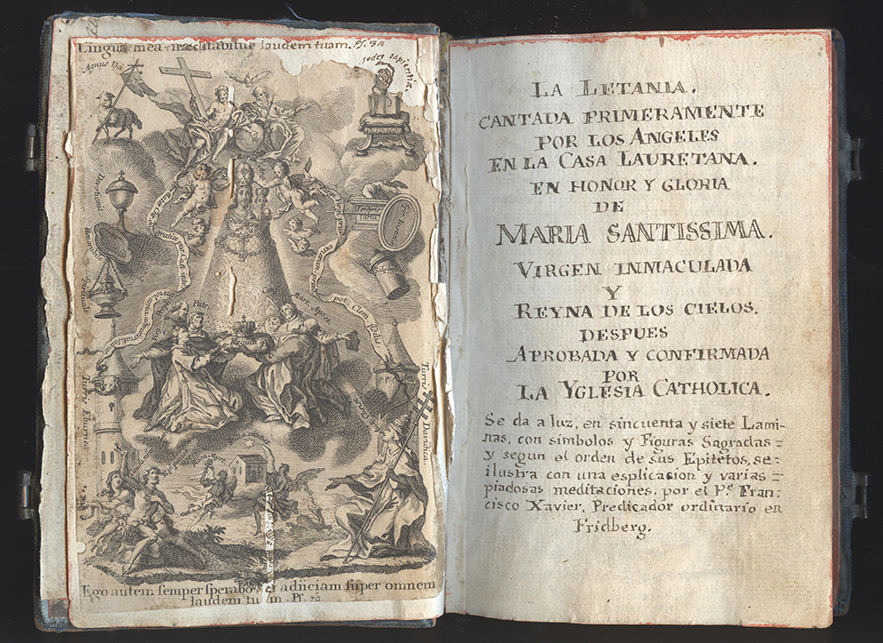 Lingua mea meditabitur laudem tuam. Ps. 34
Agnus Dei
sedes sapientiæ.
Patr.
Regina
Mart.
Turris Eburnea
Turris
Davidica.
Ego autem semper sperabo, et adiiciam super omnem
laudem tuam. Ps.
LA LETANIA.
CANTADA PRIMERAMENTE
POR LOS ANGELES
EN LA CASA LAURETANA.
EN HONOR Y GLORIA
DE
MARIA SANTISSIMA.
VIRGEN INMACULADA
Y
REYNA DE LOS CIELOS.
DESPUES
APROBADA Y CONFIRMADA
POR
LA YGLESIA CATHOLICA.
Se da a luz, en sincuenta y siete Lami-
nas, con simbolos y Figuras Sagradas =
y segun el orden de sus Epitetos, se =
ilustra con una esplicasion y varias =
piadosas meditaciones, por el Pe. Fran-
cisco Xavier, Predicador ordinario en
Fridberg.